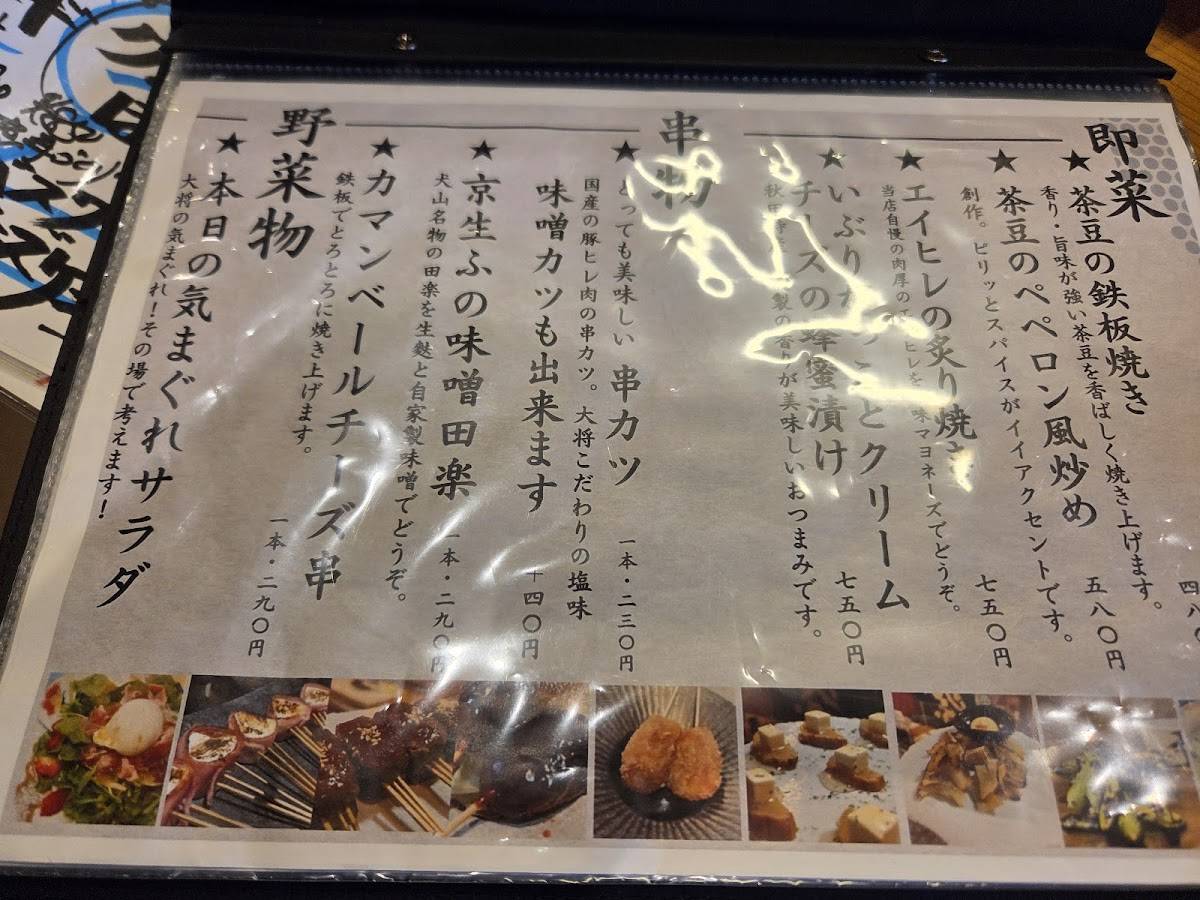 即菜
★茶豆の鉄板焼き
香り・旨味が強い茶豆を香ばしく焼き上げます。
四八
★茶豆のペペロン風炒め
創作。ピリッとスパイスがイイアクセントです。
五八〇円
★エイヒレの炙り焼き
当店自慢の肉厚のエイヒレを 味マヨネーズでどうぞ。
七五〇円
★いぶり とクリーム
チーズの蜂蜜漬け
秋田 製の香りが美味しいおつまみです。
七五〇円
串物
★とっても美味しい 串カツ
国産の豚ヒレ肉の串カツ。大将こだわりの塩味
一本・二三〇円
味噌カツも出来ます
+四〇円
★京生ふの味噌田楽
犬山名物の田楽を生麩と自家製味噌でどうぞ。
一本・二九〇円
★カマンベールチーズ串
鉄板でとろとろに焼き上げます。
一本・二九〇円
野菜物
★本日の気まぐれサラダ
大将の気まぐれ!その場で考えます!